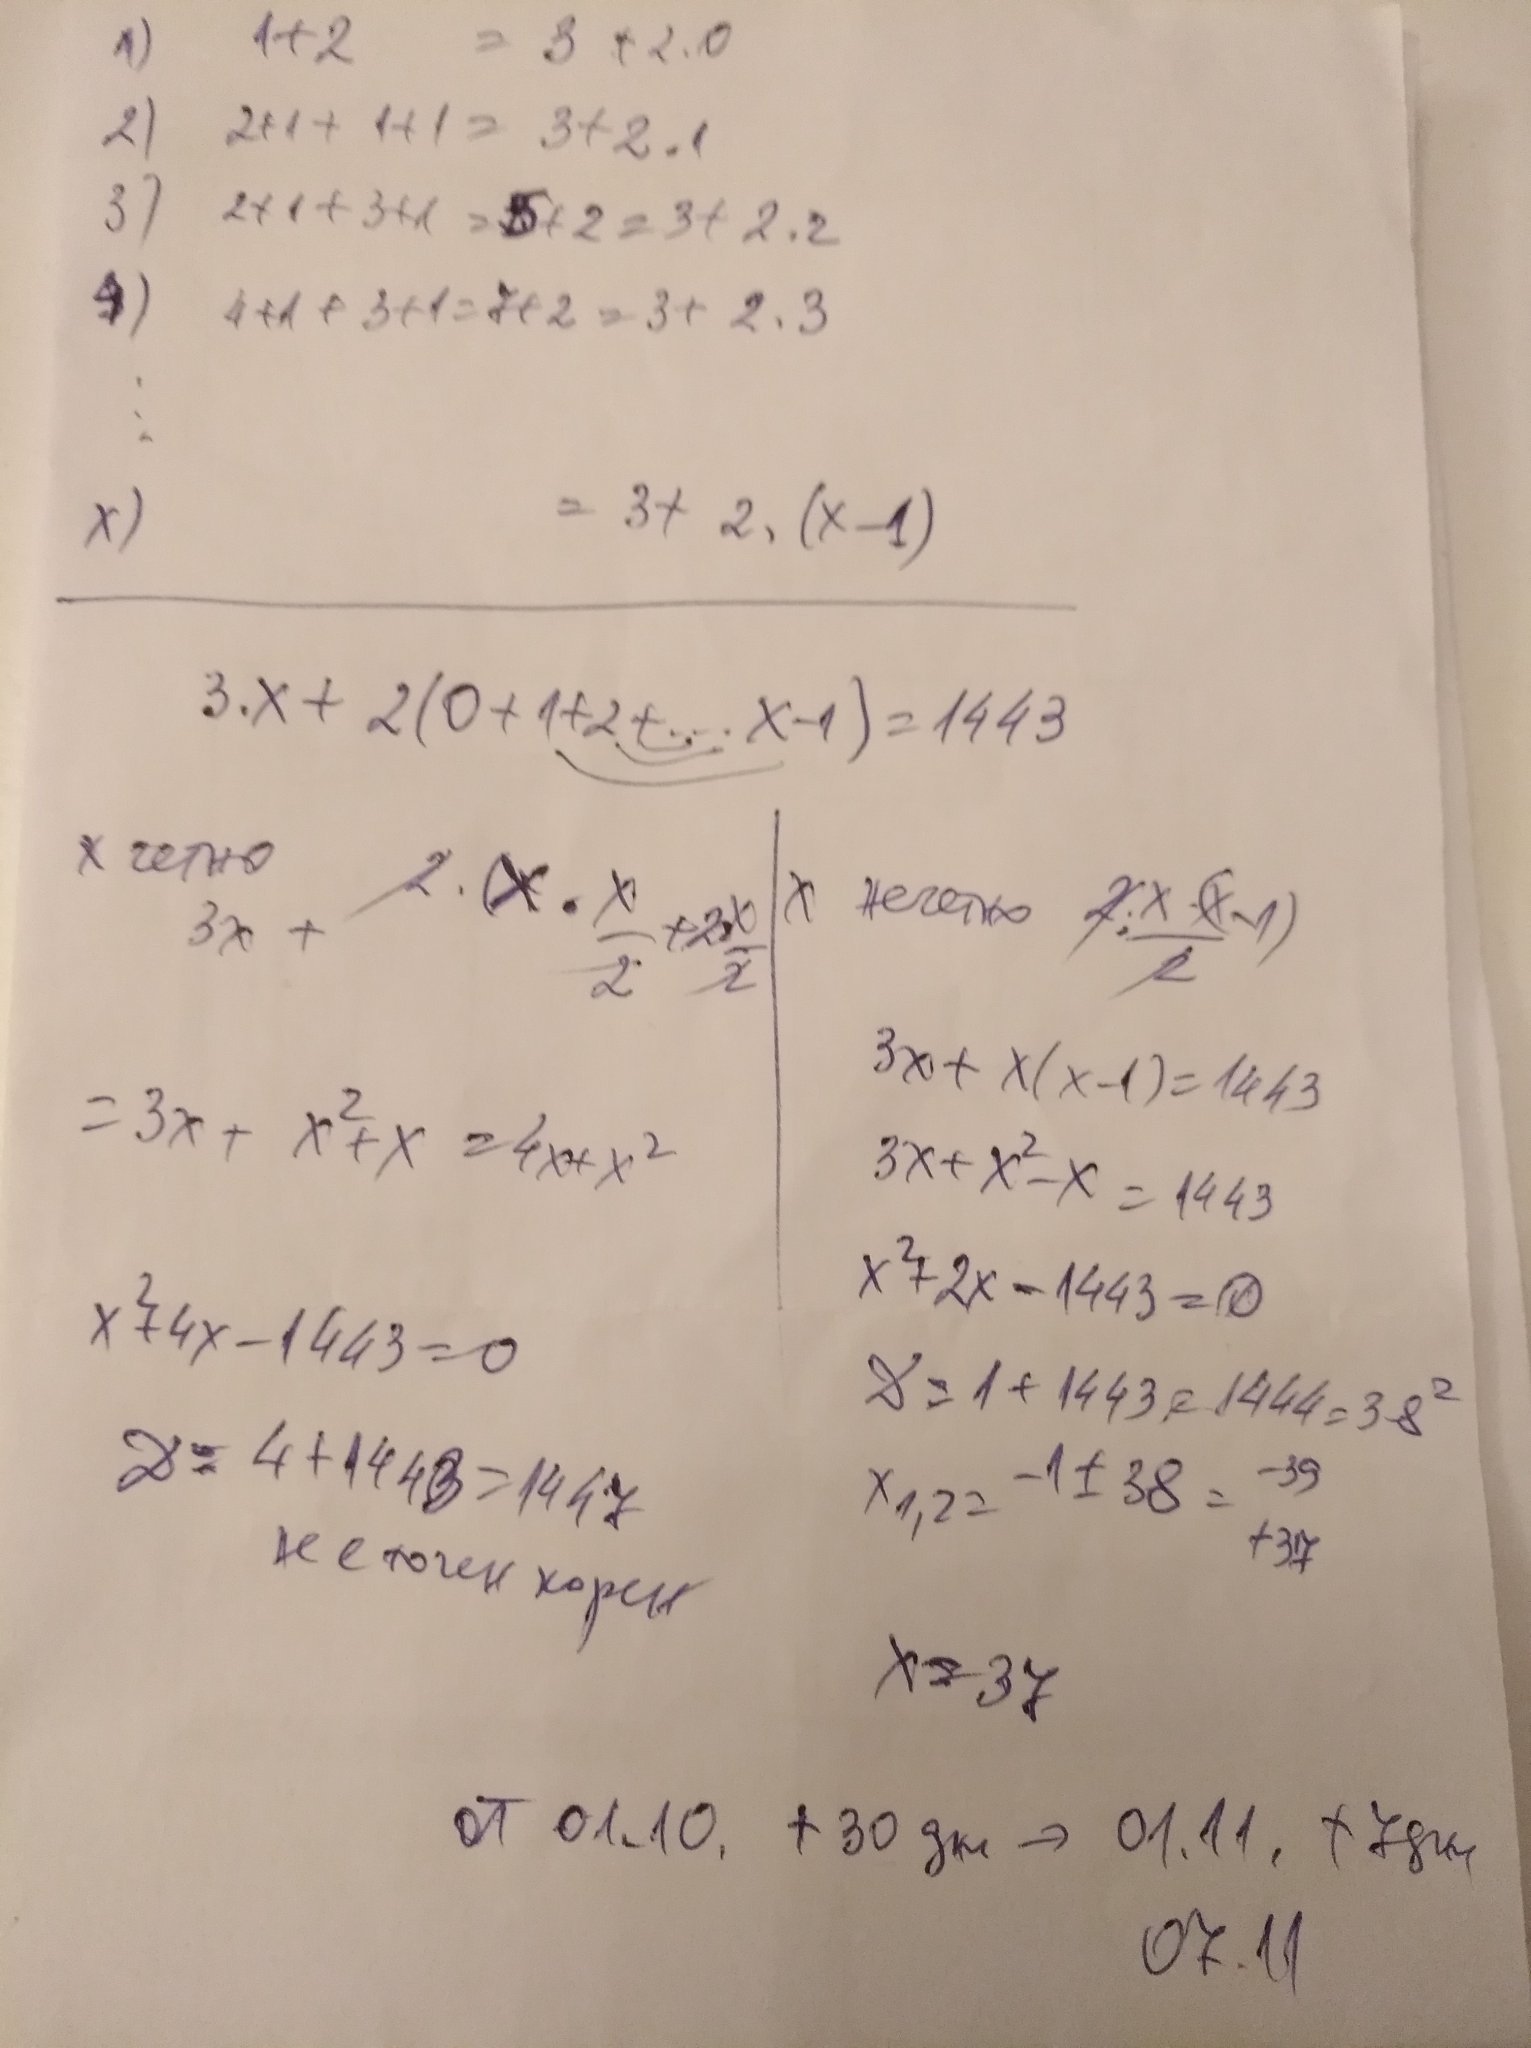 1) 1+2 = 3 + 2.0
2) 2+1+ 1+1 = 3+2.1
3) 2+1+3+1 = 5+2 = 3+ 2.2
4) 4+1+3+1=7+2 = 3+ 2.3
⋮
x) = 3+ 2.(x-1)
3.x+ 2(0+1+2+.... x-1)=1443
x четно
3x + 2.(x.x/2 +2x/2
=3x+ x²+x =4x+x²
x²+4x-1443=0
D= 4+1443=1447
не е точен корен
x нечетно 2.x.(x-1)/2
3x+ x(x-1)=1443
3x+x²-x = 1443
x²+2x-1443=0
D= 1+1443=1444=38²
x1,2= -1±38 = -39
+37
x=37
от 01.10. +30 дни → 01.11. +7дни
07.11